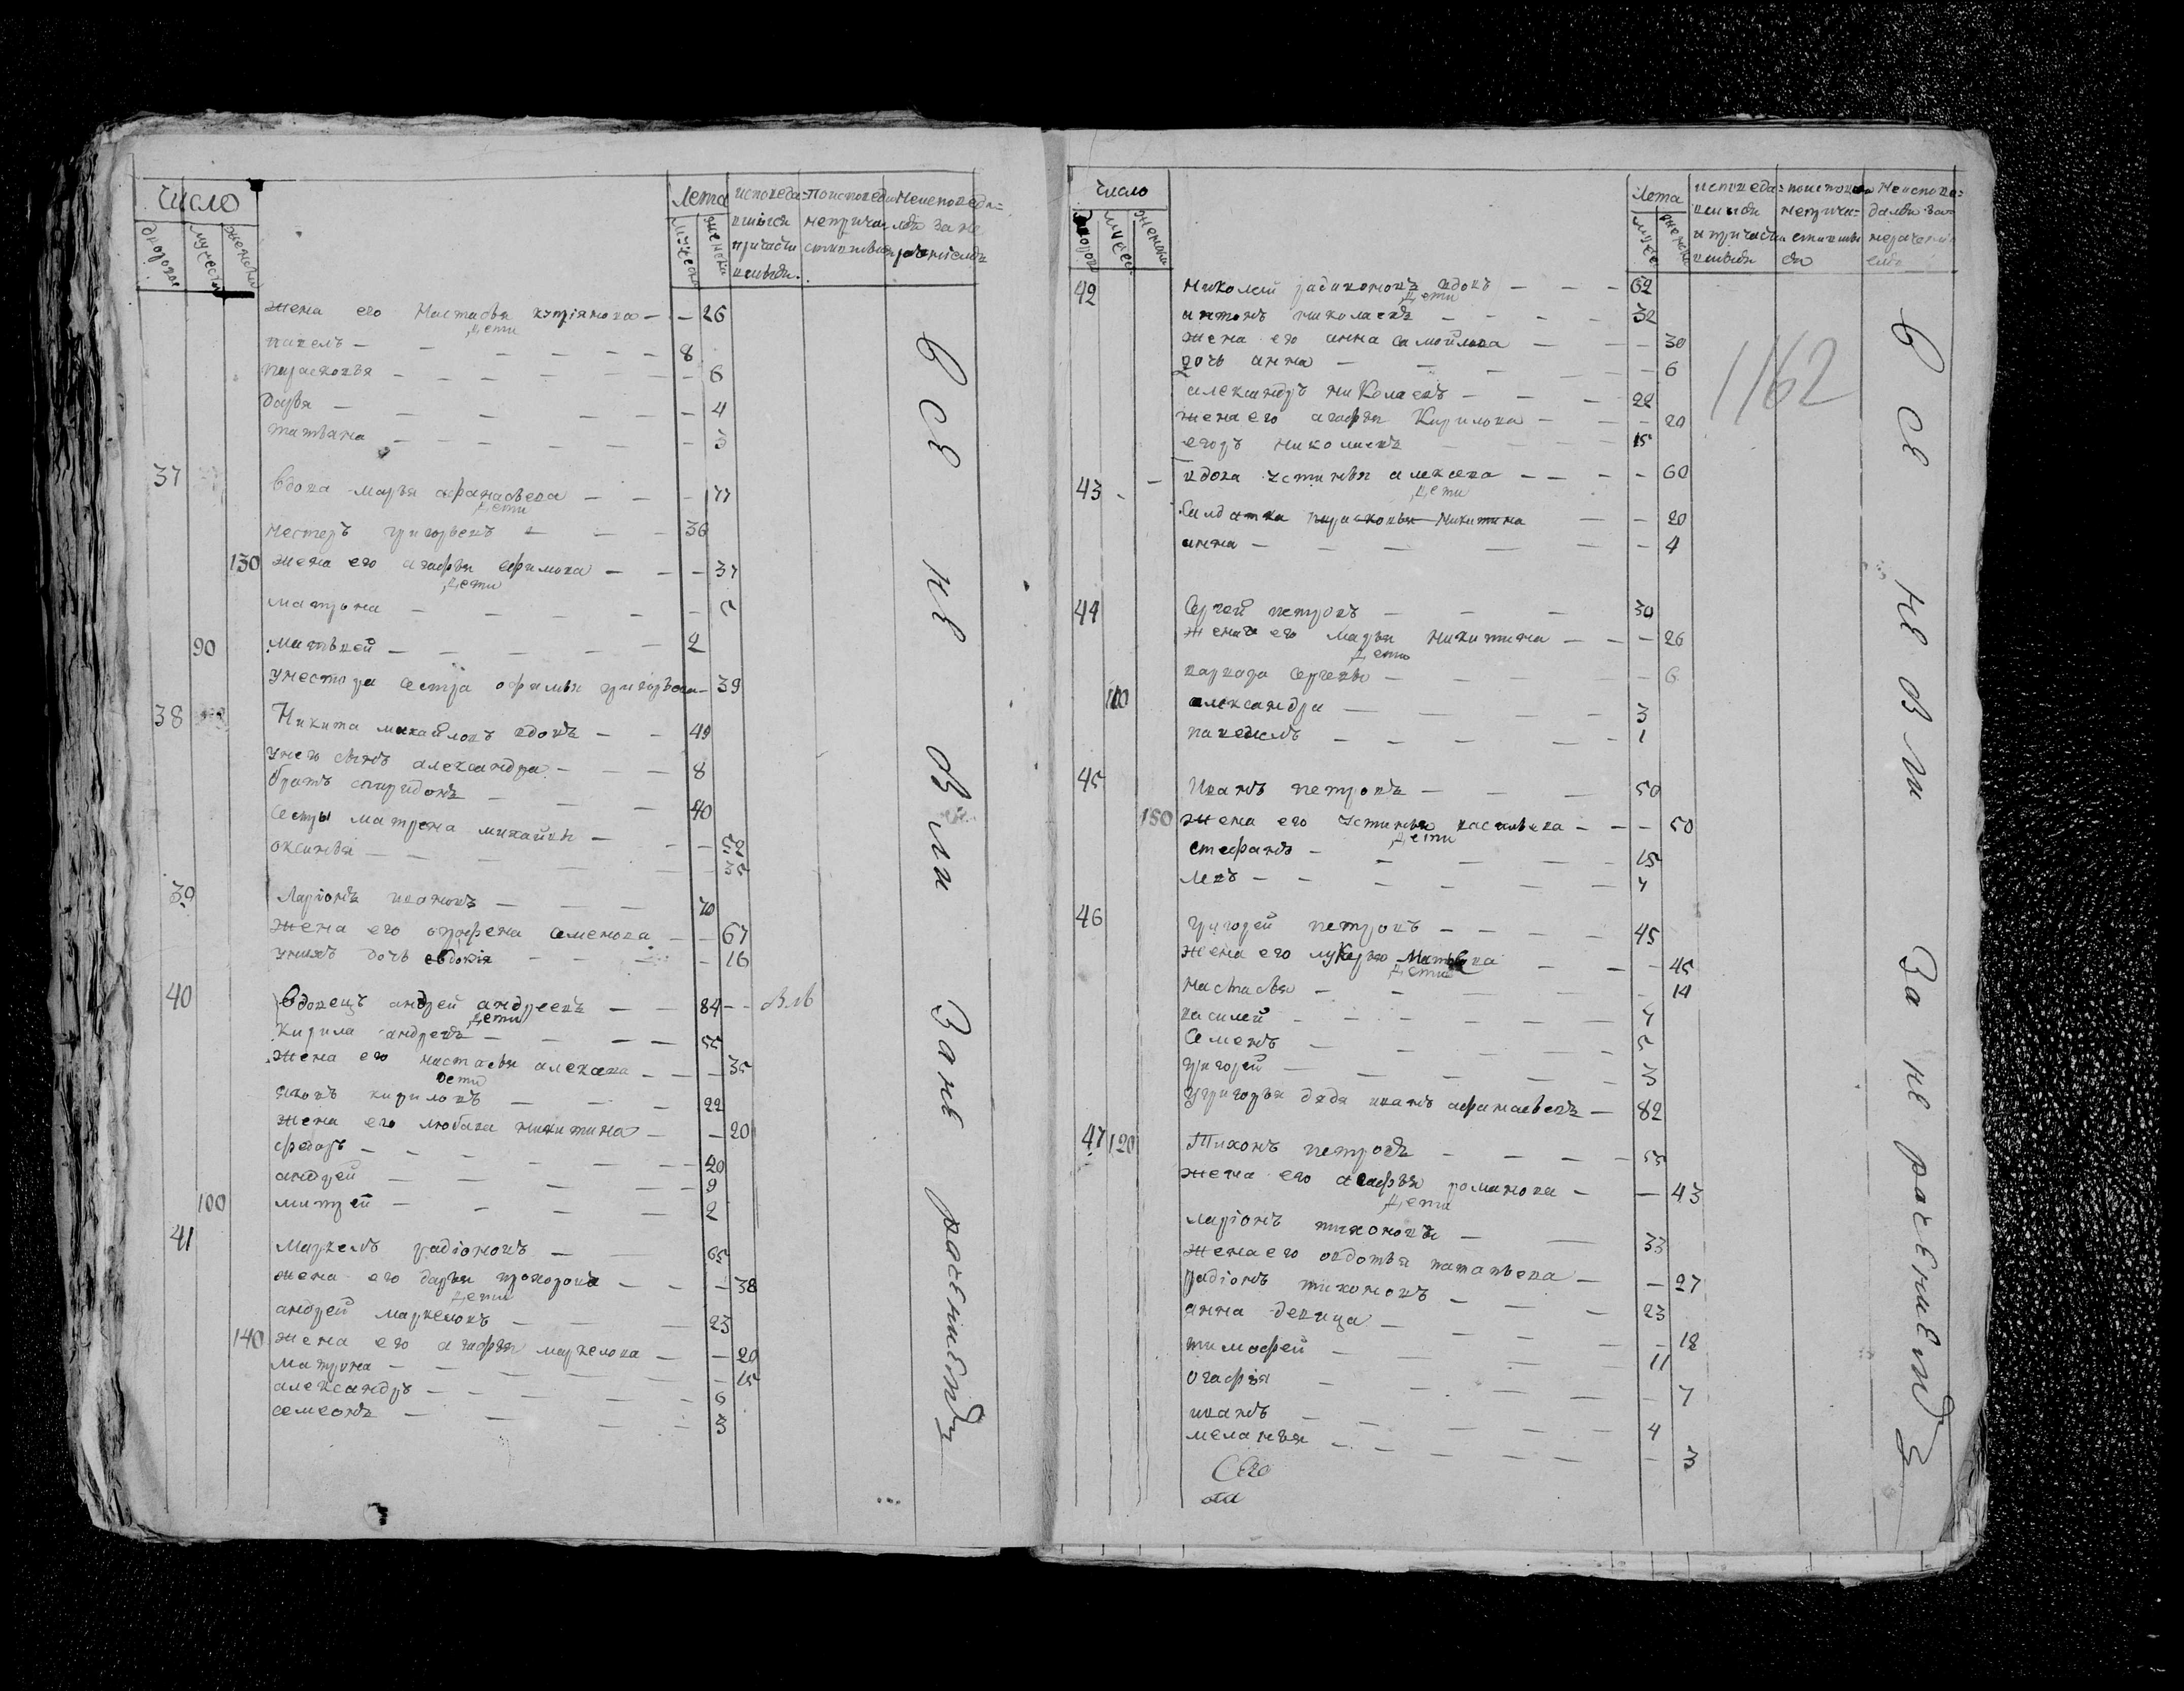 число
дворовъ мужеска женска
Лета
мужеска женска
исповеда=
вшыся
причасти
вшыся.
поисповеди
неприча
стившыся
Неисповеда=
лся за не
рачениемъ
жена его Настасья купріянова - - 26
дети
павелъ - 8
парасковья - 6
дарья - 4
татьяна - 3
37 вдова марья афанасьева - 77
дети
нестеръ григорьевъ - 36
130 жена его агафья ефимова - 37
дети
матрона - 5
90 матьвей - 2
унестера сестра офимья григорьева - 39
38 Никита михайловъ вдовъ - 49
унего сынъ александра - 8
братъ спиридонъ - 40
сестры матрена михайвы - 52
оксинья - 35
39 Ларіонъ ивановъ - 70
жена его огрофена семенова - 67
унихъ дочь евдокія - 16
40 Вдовецъ андрей андреевъ - 84 - - вль
дети
кирила андревъ - 55
жена его настасья алексева - 35
дети
яковъ кириловъ - 22
жена его любава никитина - 20
федоръ - 20
андрей - 9
100 митрей - 2
41 маркелъ радіоновъ - 65
жена его дарья прохорова - 38
дети
андрей маркеловъ - 23
140 жена его агафья маркелова - 20
матрона - 15
александръ - 6
семеонъ - 3
все не были за не рачениемъ
число
дворовъ мужес женска
Лета
мужес женска
исповеда=
вшыся
и причасти
вшыся
поисповеди
неприча=
стившы
ся
Неиспове=
дался за=
нерачени
емъ
1162
42 николай радивоновъ вдовъ - - - 62
дети
антонъ николаевъ - 32
жена его анна самойлова - 30
дочь анна - 6
александръ николаевъ - 22
жена его агафья Кирилова - 20
егоръ николаевъ - 15
43 - вдова устинья алексева - - - 60
дети
Салдатка парасковья никитина - 20
анна - 4
44 Сергей петровъ - 30
жена его марья никитина - 26
дети
варвара сергевы - 6
110 александра - 3
павелъ - 1
45 Иванъ петровъ - 50
150 жена его устинья васильева - 50
дети
стефанъ - 15
левъ - 7
46 григорей петровъ - 45
жена его лукерья Матвева - 45
дети
настасья - 14
василей - 7
Семенъ - 5
григорей - 3
угригорья дядя иванъ афанасьевъ - 82
47 120 Тихонъ петровъ - 55
жена его агафья романова - 43
дети
ларіонъ тихоновъ - 33
жена его овдотья патапьева - 27
радіонъ тихоновъ - 23
анна девица - 18
тимофей - 11
огафья - 7
иванъ - 4
меланья - 3
все не были За не рачениемъ